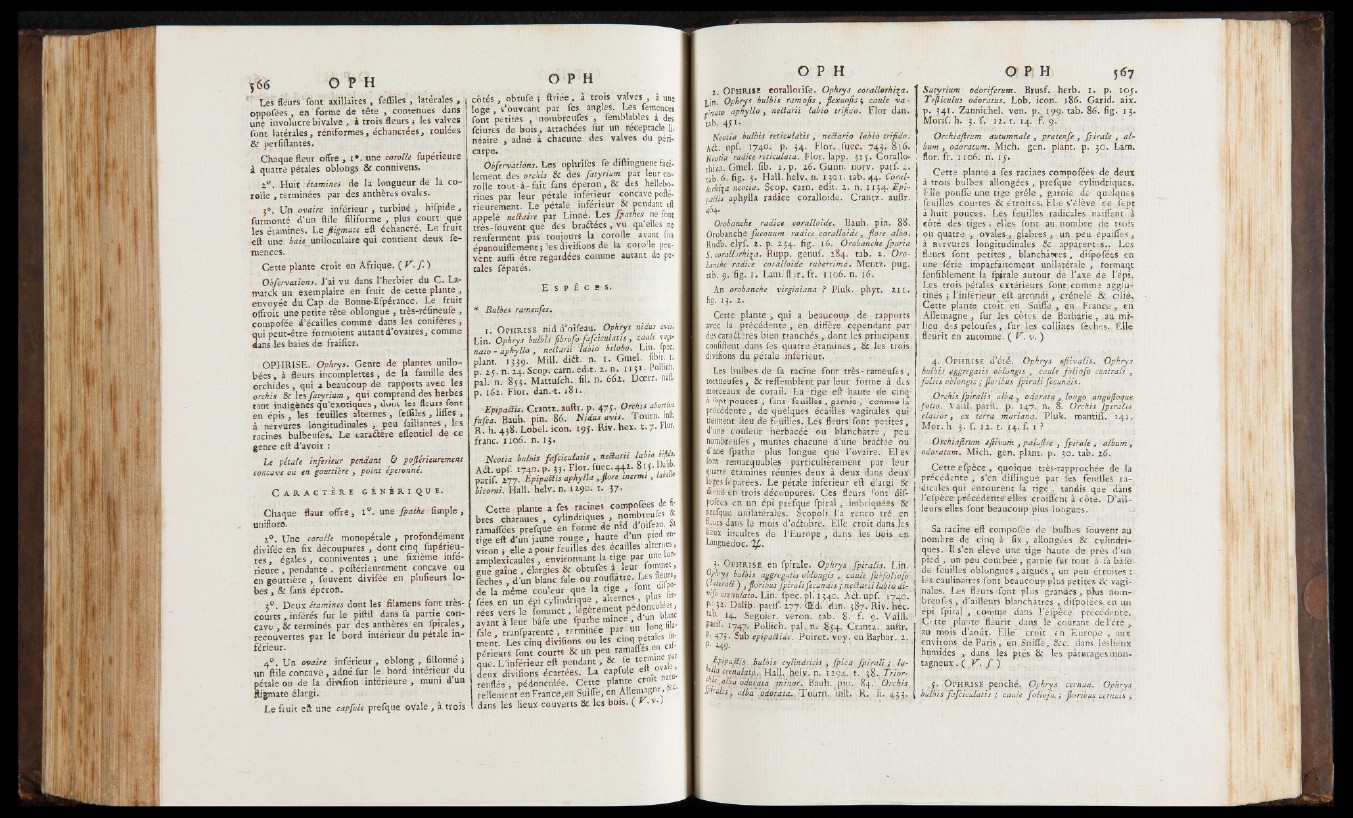 566 O P H
Les fleurs font axillaires, feffiles, latérales,
oppofées, en forme de tête, contenues dans
une involucre bivalve, à trois fleurs; les valves
font latérales, réniformes, échancrées, roulées
& perfiftantes.
Chaque fleur offre, 1°. une corolle fupérieure
à quatre pétales oblongs & connivens.
2°. Huit étamines de la longueur de la co-
rolle, terminées par des anthères ovales.
3°. Un ovaire inférieur, turbiné, hifpide,
furmonté d'un ftile filiforme, plus court que
les étamines. Le ftigmate eft échancré. Le fruit
eft une baie uniloculaire qui contient deux fe-
mences.
Cette plante croît en Afrique. (V. f.)
Obfervations. J'ai vu dans l'herbier du C. La-
marck un exemplaire en fruit de cette plante,
envoyée du Cap de Bonne-Efpérance. Le fruit
offroit une petite tête oblongue, très-réfineufe,
compofée d'écailles comme dans les conifères,
qui peut-être formoient autant d'ovaires, comme
dans les baies de fraifier.
OPHRISE. Ophrys. Genre de plantes unilo-
bées, à fleurs incomplettes, de la famille des
orchides, qui a beaucoup de rapports avec les
orchis & les fatyrium, qui comprend des herbes
tant indigènes qu'exotiques, dont les fleurs font
en épis, les feuilles alternes, feffiles, liffes,
à nervures longitudinales, peu faillantes, les
racines bulbeufes. Le caractère effentiel de ce
genre eft d'avoir :
Le pétale inférieur pendant & poftérieurement
concave ou en gouttière, point éperonné.
CARACTÈRE GÉNÉRIQUE.
Chaque fleur offre, 1°. une fpathe fimple,
uniflore.
2°. Une corolle monopétale, profondément
divifée en fix découpures, dont cinq fupérieu-
res, égales, conniventes; une fixième infé-
rieure, pendante, poftérieurement concave ou
en gouttière, fouvent divifée en plufieurs lo-
bes, & fans éperon.
3°. Deux étamines dont les filamens font très-
courts, inférés fur le piftil dans fa partie con-
cave, & terminés par des anthères en fpirales,
recouvertes par le bord intérieur du pétale in-
férieur.
4°. Un ovaire inférieur, oblong, fillonné;
un ftile concave, adné fur le bord intérieur du
pétale ou de la divifion inférieure, muni d'un
ftigmate élargi.
Le fruit eft une capfule prefque ovale, à trois
O P H
côtés, obtufe; ftriée, à trois valves, à une
loge, s'ouvrant par fes angles. Les femences
font petites, nombreufes, femblables à des
fciures de bois, attachées fur un réceptacle li-
néaire, adné à chacune des valves du péri-
carpe.
Obfervations. Les ophrifes fe diftinguent faci-
lement des orchis & des fatyrium par leur co-
rolle tout-à-fait fans éperon, & des hellebo-
rines par leur pétale inférieur concave pofté-
rieurement. Le pétale inférieur & pendant eft
appelé nectaire par Linné. Les fpathes ne font
très-fouvent que des bractées, vu qu'elles ne
renferment pas toujours la corolle avant fon
épanouiffement; les divifions de la corolle peu-
vent auffi être regardées comme autant de pé-
tales féparés.
ESPÈCES.
* Bulbes rameufes.
1. OPHRISE nid d'oifeau. Ophrys nidus avis.
Lin. Ophrys bulbis fibrofo-fafciculatis, caule vagi-
nato-aphyllo, nectarii labio bilobo. Lin. fpec.
plant. 1339. Mill. dict. n. 1. Gmel. fibir. 1.
p. 25. n. 24. Scop. carn. edit. 2. n. 1131. Pollich.
pal. n. 853. Mattufch. fil. n. 662. Doerr. naff.
p. 162. Flor. dan. t. 181.
Epipactis. Crantz. auftr. p. 475. Orchis abortiva
fufca. Bauh. pin. 86. Nidus avis. Tourn. inft.
R. h. 438. Lobel. icon. 195. Riv. hex. t. 7. Flor.
franc. 1106. n. 13.
Neotia bulbis fafciculatis, nectarii labio bifido.
Act. upf. 1740. p. 33. Flor. fuec. 442. 815. Dalib.
parif. 277. Epipactis aphylla, flore inermi, labello
bicorni. Hall. helv. n. 1290. t. 37.
Cette plante a fes racines compofées de fi-
bres charnues, cylindriques, nombreufes &
ramaffées prefque en forme de nid d'oifeau. Sa
tige eft d'un jaune rouge, haute d'un pied en-
viron; elle a pour feuilles des écailles alternes,
amplexicaules, environnant la tige par une lon-
gue gaîne, élargies & obtufes à leur fommet,
fèches, d'un blanc fale ou rouffâtre. Les fleurs,
de la même couleur que la tige, font difpo-
fées en un épi cylindrique, alternes, plus fer-
rées vers le fommet, légèrement pédonculées,
ayant à leur bâfe une fpathe mince, d'un blanc
fale, tranfparente, terminée par un long fila-
ment. Les cinq divifions ou les cinq pétales fu-
périeurs font courts & un peu ramaffés en caf-
que. L'inférieur eft pendant, & fe termine par
deux divifions écartées. La capfule eft ovale,
renflée, pédonculée. Cette plante croît natu-
rellement en France, en Suiffe, en Allemagne, &c.
dans les lieux couverts & les bois. (V. v.)
O P H
2. OPHRISE corallorife. Ophrys corallorhiza.
Lin. Ophrys bulbis ramofis, flexuofis; caule va-
ginato aphyllo, nectarii labio trifido. Flor dan.
tab. 451.
Neotia bulbis reticulatis, nectario labio trifido.
Act. upf. 1740. p. 34. Flor. fuec. 743. 816.
Neotia radice reticulata. Flor. lapp. 315. Corallo-
rhiza. Gmel. fib. 1. p. 26. Gunn. norv. parf. 2.
tab. 6. fig. 3. Hall. helv. n. 1301. tab. 44. Coral-
lorhiza neotia. Scop. carn. edit. 2. n. 1134. Epi-
pactis aphylla radice coralloide. Crantz. auftr.
464.
Orobanche radice coralloide. Bauh. pin. 88.
Orobanche fuconum radice coralloide, flore albo.
Rudb. elyf. 2. p. 234. fig. 16. Orobanche fpuria
S. corallorhiza. Rupp. genuf. 284. tab. 2. Oro-
banche radice coralloide ruberrima. Mentz. pug.
tab. 9. fig. 1. Lam. flor. fr. 1106. n. 16.
An orobanche virginiana ? Pluk. phyt. 211.
fig. 13. 2.
Cette plante, qui a beaucoup de rapports
avec la précédente, en diffère cependant par
des caractères bien tranchés, dont les principaux
confiftent dans fes quatre étamines, & les trois
divifions du pétale inférieur.
Les bulbes de fa racine font très-rameufes,
tortueufes, & reffemblent par leur forme à des
morceaux de corail. La tige eft haute de cinq
à fept pouces, fans feuilles, garnie, comme la
précédente, de quelques écailles vaginales qui
tiennent lieu de feuilles. Les fleurs font petites,
d'une couleur herbacée ou blanchâtre, peu
nombreufes, munies chacune d'une bractée ou
d'une fpathe plus longue que l'ovaire. Elles
font remarquables particulièrement par leur
quatre étamines réunies deux à deux dans deux
loges féparées. Le pétale inférieur eft élargi &
divifé en trois découpures. Ces fleurs font dif-
pofées en un épi prefque fpiral, imbriquées &
prefque unilatérales. Scopoli l'a rencontré en
fleurs dans le mois d'octobre. Elle croît dans les
lieux incultes de l'Europe, dans les bois en
Languedoc. ♃.
3. OPHRISE en fpirale. Ophrys fpiralis. Lin.
Ophrys bulbis aggregatis oblongis, caule fubfoliofo
(laterali), floribus fpirali fecundis; nectarii labio di-
vifo crenulato. Lin. fpec. pl. 1340. Act. upf. 1740.
p. 32. Dalib. parif. 277. Œd. dan. 387. Riv. hec.
tab. 14. Seguier. veron. tab. 8. f. 9. Vaill.
parif. 1747. Pollich. pal. n. 854. Crantz. auftr.
p. 473. Sub epipactide. Poiret. voy. en Barbar. 2.
p. 249.
Epipactis bulbis cylindricis, fpica fpirali; la-
bello crenulato. Hall. helv. n. 1294. t. 38. Trior-
chis alba odorata minor. Bauh. pin. 84. Orchis
fpiralis, alba odorata. Tourn. inft. R. h. 433.
O P H 567
Satyrium odoriferum. Brusf. herb. 1. p. 105.
Tefticulus odoratus. Lob. icon. 186. Garid. aix.
p. 341. Zannichel. ven. p. 199. tab. 86. fig. 13.
Morif. h. 3. f. 12. t. 14. f. 9.
Orchiaftrum autumnale, pratenfe, fpirale, al-
bum, odoratum. Mich. gen. plant. p. 30. Lam.
flor. fr. 1106. n. 15.
Cette plante a fes racines compofées de deux
à trois bulbes allongées, prefque cylindriques.
Elle pouffe une tige grêle, garnie de quelques
feuilles courtes & étroites. Elle s'élève de fept
à huit pouces. Les feuilles radicales naiffent à
côté des tiges; elles font au nombre de trois
ou quatre, ovales, glabres, un peu épaiffes,
à nervures longitudinales & apparentes. Les
fleurs font petites, blanchâtres, difpofées en
une férie imparfaitement unilatérale, formant
fenfiblement la fpirale autour de l'axe de l'épi.
Les trois pétales extérieurs font comme agglu-
tinés; l'inférieur eft arrondi, crénelé & cilié.
Cette plante croît en Suiffe, en France, en
Allemagne, fur les côtes de Barbarie, au mi-
lieu des peloufes, fur les collines fèches. Elle
fleurit en automne. (V. v.)
4. OPHRISE d'été. Ophrys æftivalis. Ophrys
bulbis aggregatis oblongis, caule foliofo centrale,
foliis oblongis; floribus fpirali fecundis.
Orchis fpiralis alba, odorata, longo anguftoque
folio. Vaill. parif. p. 147. n. 8. Orchis fpiralis
elatior, ex terra mariana. Pluk. mantiff. 141.
Mor. h. 3. f. 12. t. 14. f. 1 ?
Orchiaftrum æftivum, paluftre, fpirale, album,
odoratum. Mich. gen. plant. p. 30. tab. 26.
Cette efpèce, quoique très-rapprochée de la
précédente, s'en diftingue par fes feuilles ra-
dicales qui entourent la tige, tandis que dans
l'efpèce précédente elles croiffent à côté. D'ail-
leurs elles font beaucoup plus longues.
Sa racine eft compofée de bulbes fouvent au
nombre de cinq à fix, allongées & cylindri-
ques. Il s'en élève une tige haute de près d'un
pied, un peu courbée, garnie fur tout à fa bâfe
de feuilles oblongues, aiguës, un peu étroites;
les caulinaires font beaucoup plus petites & vagi-
nales. Les fleurs font plus grandes, plus nom-
breufes, d'ailleurs blanchâtres, difpofées en un
épi fpiral, comme dans l'efpèce précédente.
Cette plante fleurit dans le courant de l'été,
au mois d'août. Elle croît en Europe, aux
environs de Paris, en Suiffe, &c. dans les lieux
humides, dans les prés & les pâturages mon-
tagneux. (V. f.)
5. OPHRISE penché. Ophrys cernua. Ophrys
bulbis fafciculatis; caule foliofo; floribus cernuis;